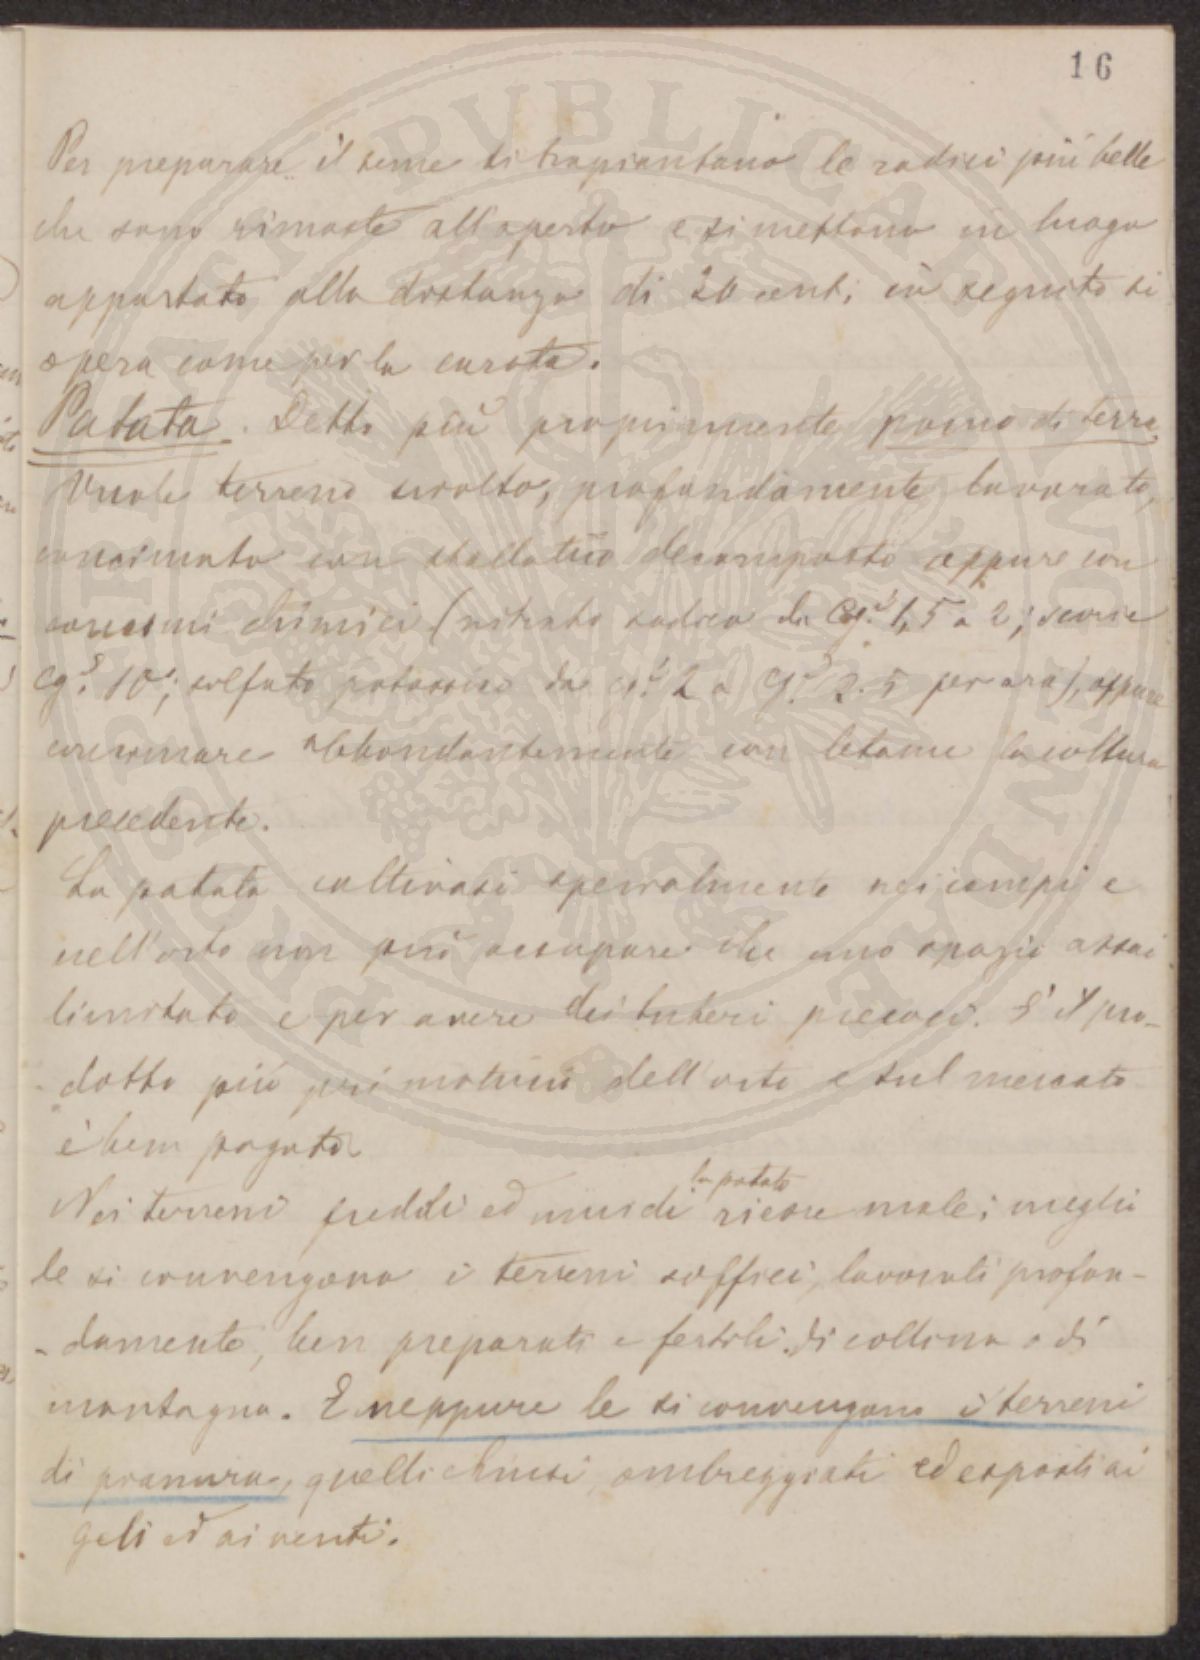 16
Per preparare il seme si trapiantano le radici più belle
che sono rimaste all'aperto e si mettono in luogo
appartato alla distanza di 20 cent; in seguito si
opera come per la carota.
Patata. Detto più propriamente pomo di terra.
Vuole terreno sciolto, profondamente lavorato,
concimato con stallatico decomposto oppure con
concimi chimici (nitrato sodico da Cg.i 1,5 a 2; scorie
Cg.i 10; solfato potassico da cg.i 2 a Cg.i 2.5 per ara), oppure
concimare abbondantemente con letame la coltura
precedente.
La patata coltivasi specialmente nei campi e
nell'orto non può occupare che uno spazio assai
limitato e per avere dei tuberi precoci. È il pro-
dotto più primaticcio dell'orto e sul mercato
è ben pagato
Nei terreni freddi ed umidi la patata riesce male; meglio
le si convengono i terreni soffici, lavorati profon-
-damente, ben preparati e fertili di collina o di
montagna. E neppure le si convengono i terreni
di pianura, quelli chiusi, ombreggiati ed esposti ai
geli ed ai venti.
PROSPERITATI PUBLICAE AUGENDAE